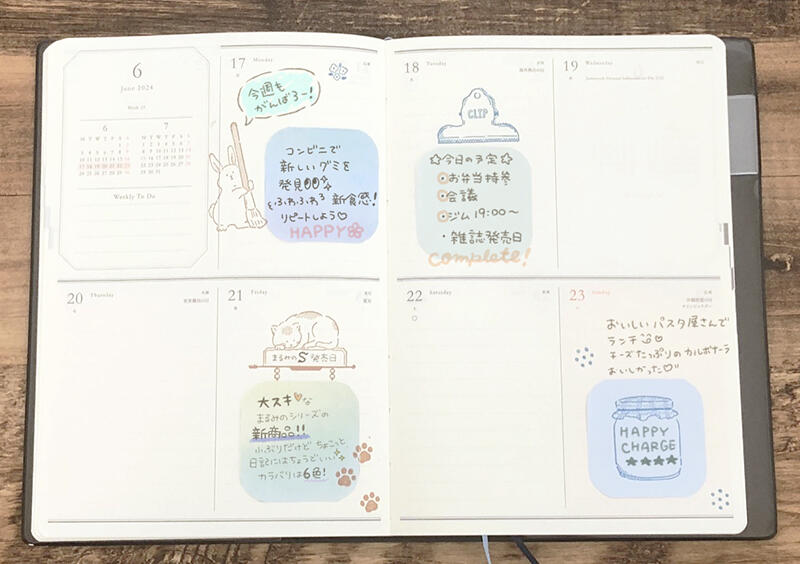 6
June 2024
Week 25
6
7
M T W T F S S
M T W T F S S
Weekly To Do
17 Monday
今週も
がんばろー!
コンビニで
新しいグミを
発見
ふわふわ 新食感!
リピートしよう♡
HAPPY
18 Tuesday
CLIP
☆今日の予定☆
お弁当持参
会議
ジム 19:00〜
・雑誌発売日
complete!
19 Wednesday
20 Thursday
21 Friday
まるみのS 発売日
大スキ♥な
まるみのシリーズの
新商品!!
小ぶりだけど ちょこっと
日記にはちょうどいい
カラバリは6色!
22 Saturday
23 Sunday
おいしいパスタ屋さんで
ランチ♡
チーズたっぷりのカルボナーラ
おいしかった♡
HAPPY
CHARGE
★★★★